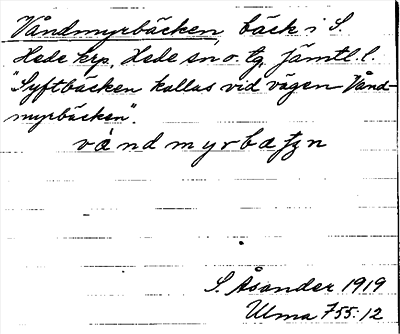 Våndmyrbäcken, bäck i S.
Hede krp, Hede sn o. tg. Jämtl. l.
"Syftbäcken kallas vid vägen Vånd-
myrbäcken".
våndmyrbæꞔn
S. Åsander 1919
Ulma 755:12